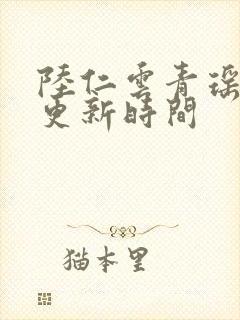 陸仁雲青瑶
更新時間
猫本里